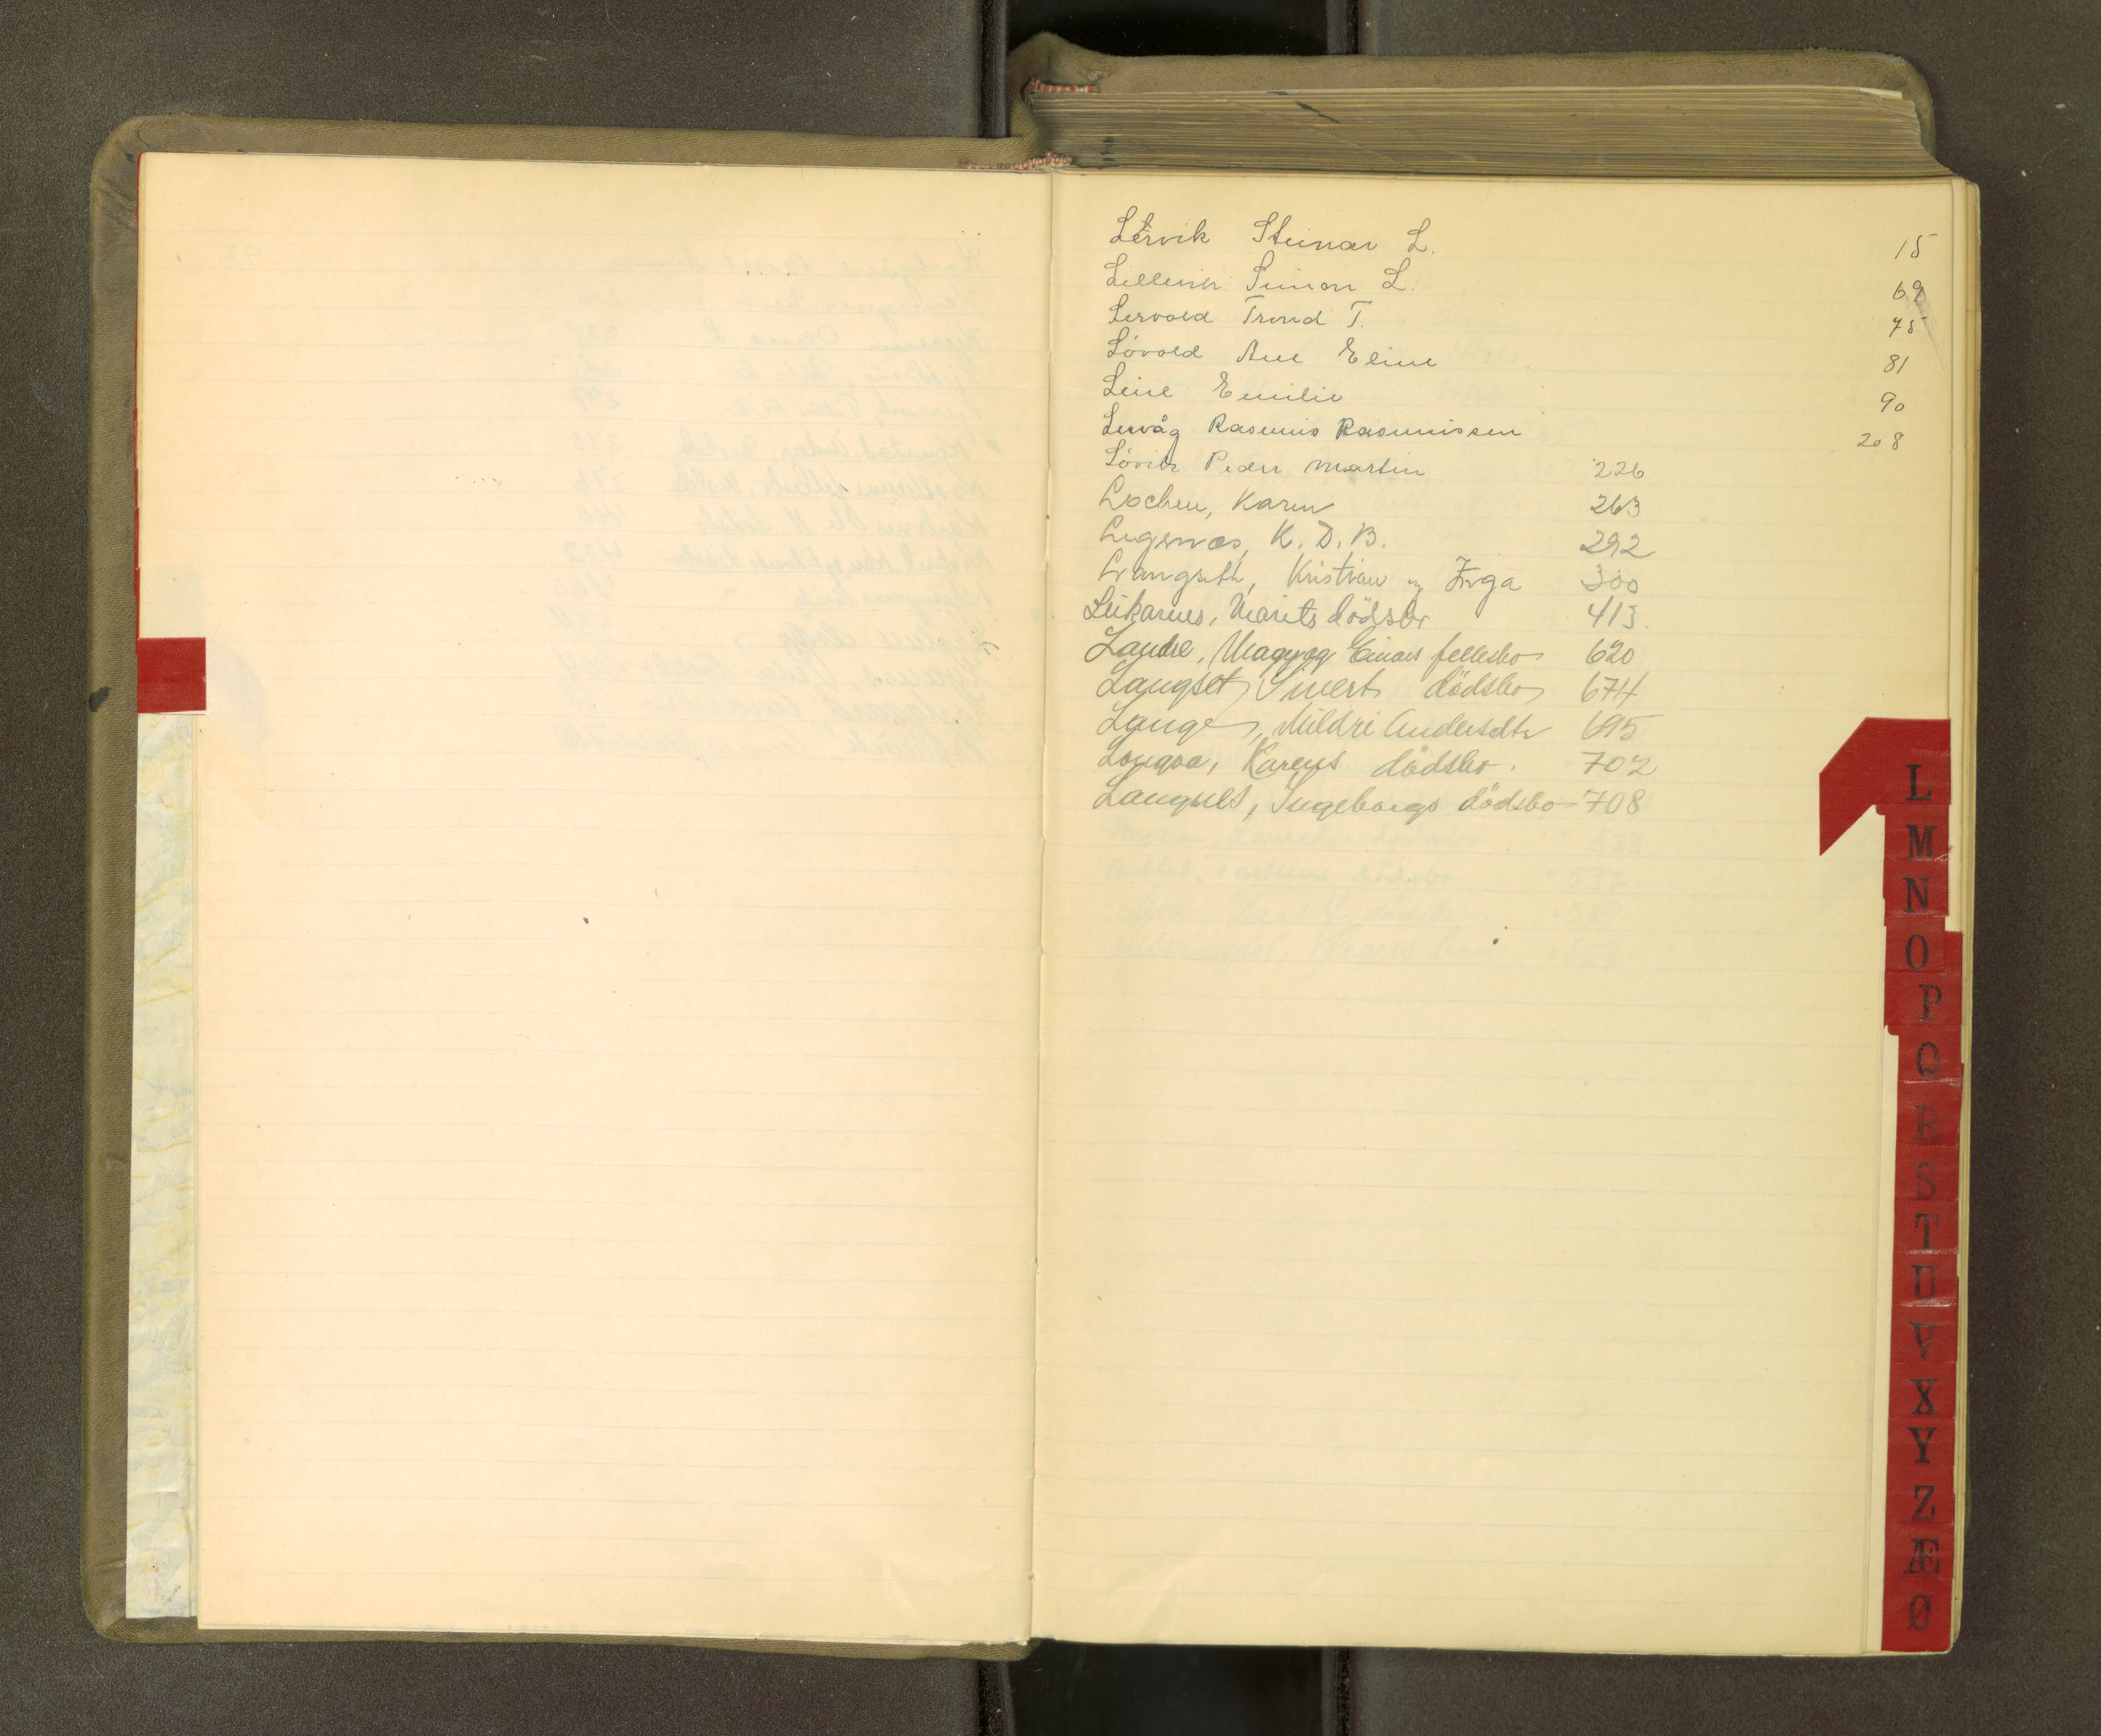 Lervik Steinar L. 15
Lillevik Simon L. 69
Lervold Trond T. 75
Lövold Ane Eline 81
Leine Emilie 90
Lervåg Rasmus Rasmussen 208
Lövik Peder Martin 226
Lochen, Karen 263
Legernæs, K. D. B. 292
Langseth, Kristian og Inga 300
Leikarnes, Marits dödsbo 413.
Lande, Magny og Einars fellesbo 620
Langset, Sivert dödsbo 674
Lange, Mildri Andersdtr 695
Longva, Karens dödsbo. 702
Langset, Ingeborgs dödsbo 708
L
M
N
O
P
Q
R
S
T
U
V
X
Y
Z
Æ
Ø